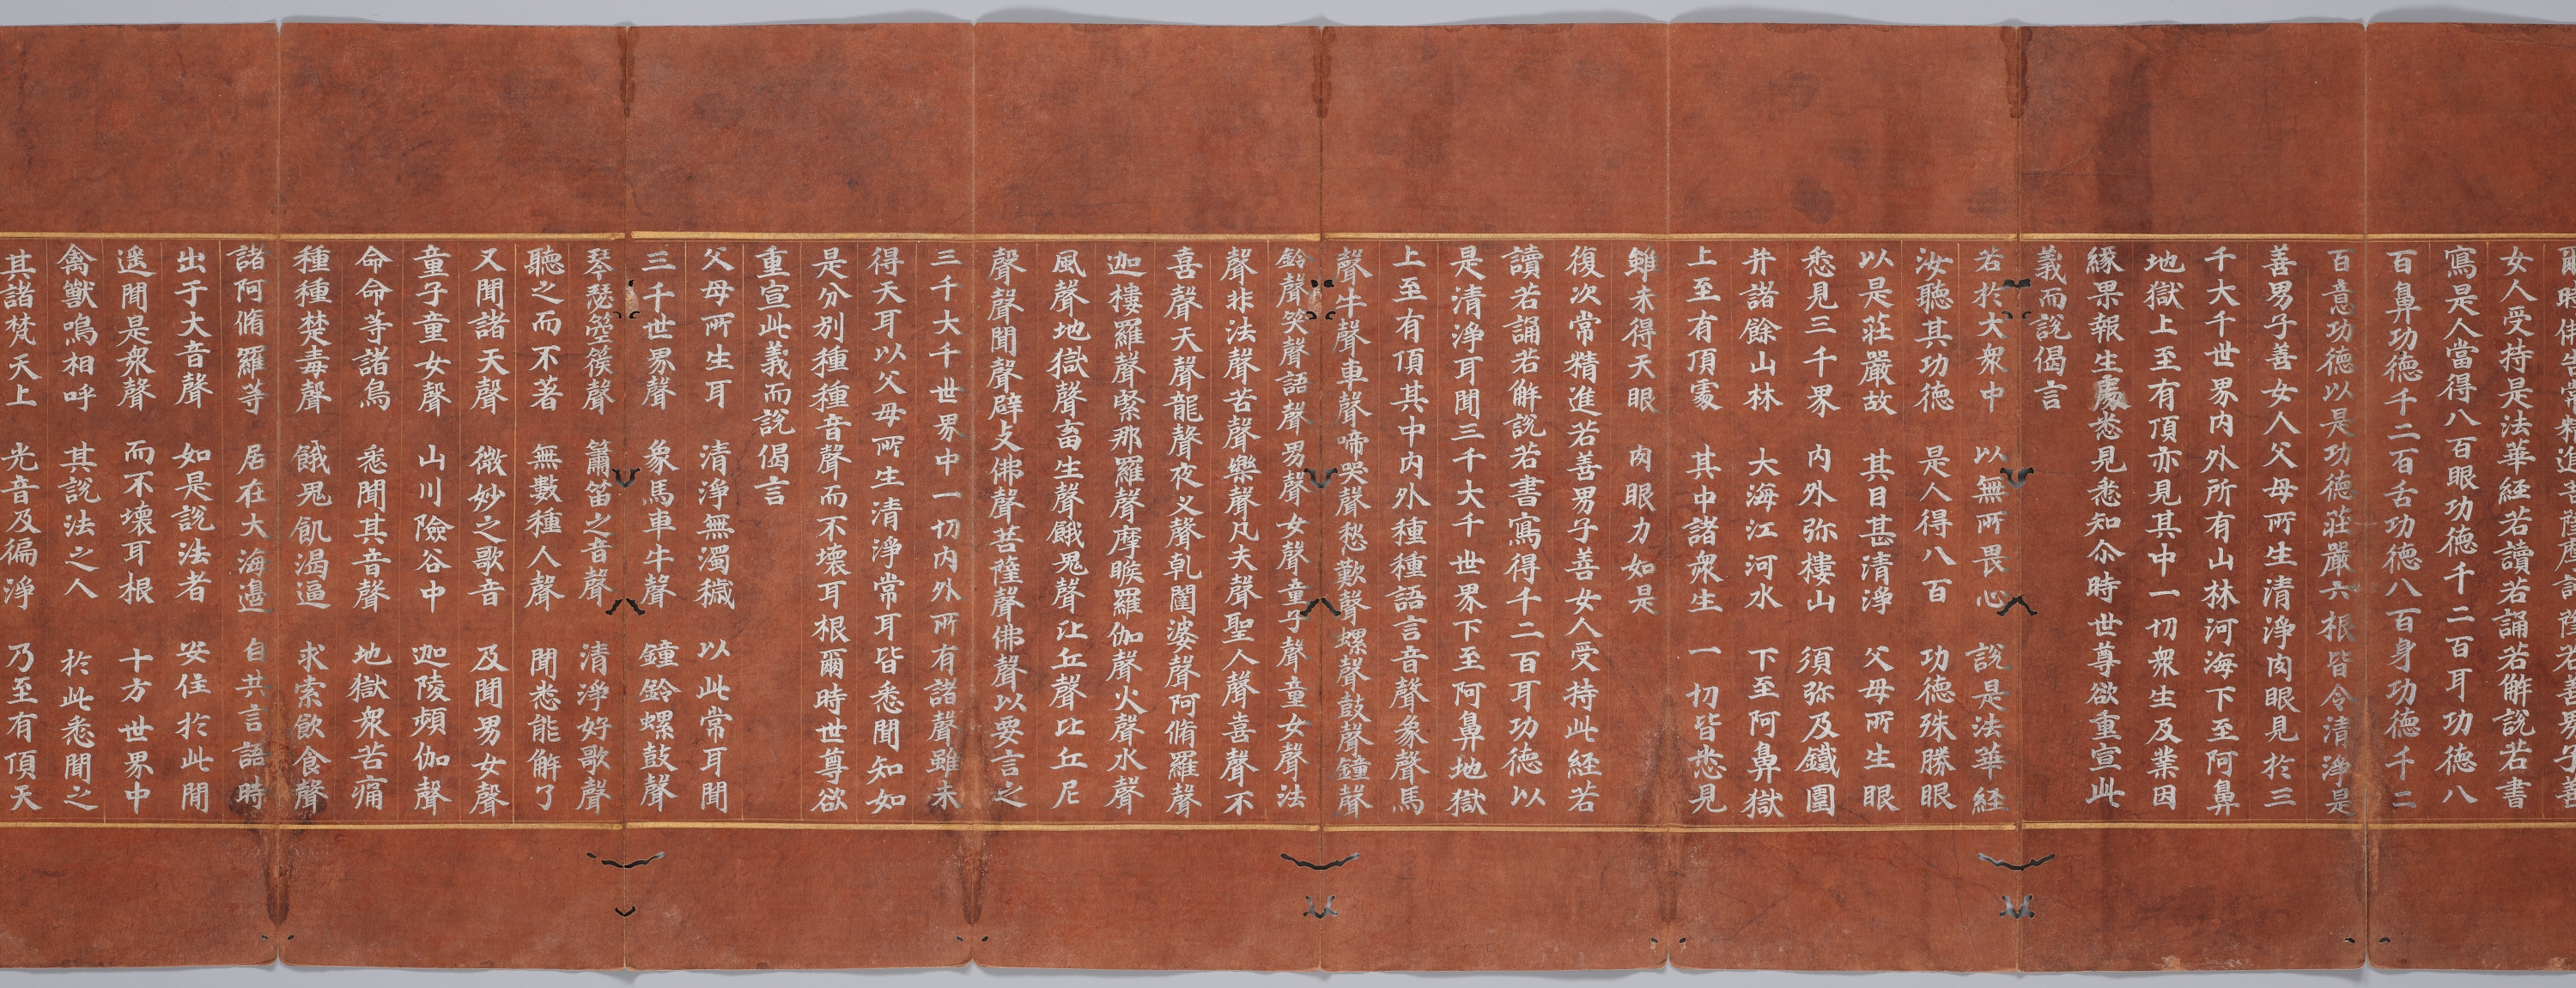 爾時佛告常精進菩薩摩訶薩若善男子善
女人受持是法華経若讀若誦若解説若書
寫是人當得八百眼功德千二百耳功德八
百鼻功德千二百舌功德八百身功德千二
百意功德以是功德莊嚴六根皆令清淨是
善男子善女人父母所生清淨肉眼見於三
千大千世界内外所有山林河海下至阿鼻
地獄上至有頂亦見其中一切衆生及業因
緣果報生處悉見悉知尒時世尊欲重宣此
義而説偈言
若於大衆中　以無所畏心　說是法華経
汝聽其功德　是人得八百　功德殊勝眼
以是莊嚴故　其目甚清淨　父母所生眼
悉見三千界　内外弥樓山　須弥及鐵圍
并諸餘山林　大海江河水　下至阿鼻獄
上至有頂處　其中諸衆生　一切皆悉見
雖未得天眼　肉眼力如是
復次常精進若善男子善女人受持此経若
讀若誦若解説若書寫得千二百耳功德以
是清淨耳聞三千大千世界下至阿鼻地獄
上至有頂其中内外種種語言音聲象聲馬
聲牛聲車聲啼哭聲愁歎聲螺聲鼓聲鐘聲
鈴聲笑聲語聲男聲女聲童子聲童女聲法
聲非法聲苦聲樂聲凡夫聲聖人聲喜聲不
喜聲天聲龍聲夜叉聲乹闥婆聲阿脩羅聲
迦樓羅聲緊那羅聲摩睺羅伽聲火聲水聲
風聲地獄聲畜生聲餓鬼聲比丘聲比丘尼
聲聲聞聲辟支佛聲菩薩聲佛聲以要言之
三千大千世界中一切内外所有諸聲雖未
得天耳以父母所生清淨常耳皆悉聞知如
是分别種種音聲而不壊耳根爾時世尊欲
重宣此義而説偈言
父母所生耳　清淨無濁穢　以此常耳聞
三千世界聲　象馬車牛聲　鐘鈴螺鼓聲
琴瑟箜篌聲　簫笛之音聲　清淨好歌聲
聽之而不著　無數種人聲　聞悉能解了
又聞諸天聲　微妙之歌音　及聞男女聲
童子童女聲　山川險谷中　迦陵頻伽聲
命命等諸鳥　悉聞其音聲　地獄衆苦痛
種種楚毒聲　餓鬼飢渴逼　求索飲食聲
諸阿脩羅等　居在大海邊　自共言語時
出于大音聲　如是說法者　安住於此間
遥聞是衆聲　而不壊耳根　十方世界中
禽獸鳴相呼　其説法之人　於此悉聞之
其諸梵天上　光音及徧淨　乃至有頂天